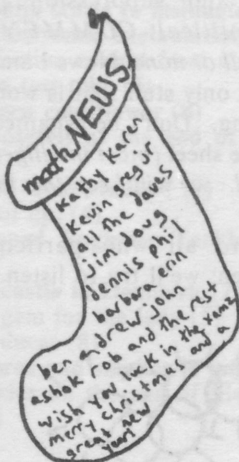 mathNEWS
kathy karen
kevin greg jr
all the daves
jim doug
dennis phil
barbara erin
ben andrew john
ashok rob and the rest
wish you luck in the
merry christmas and a
great new
year!